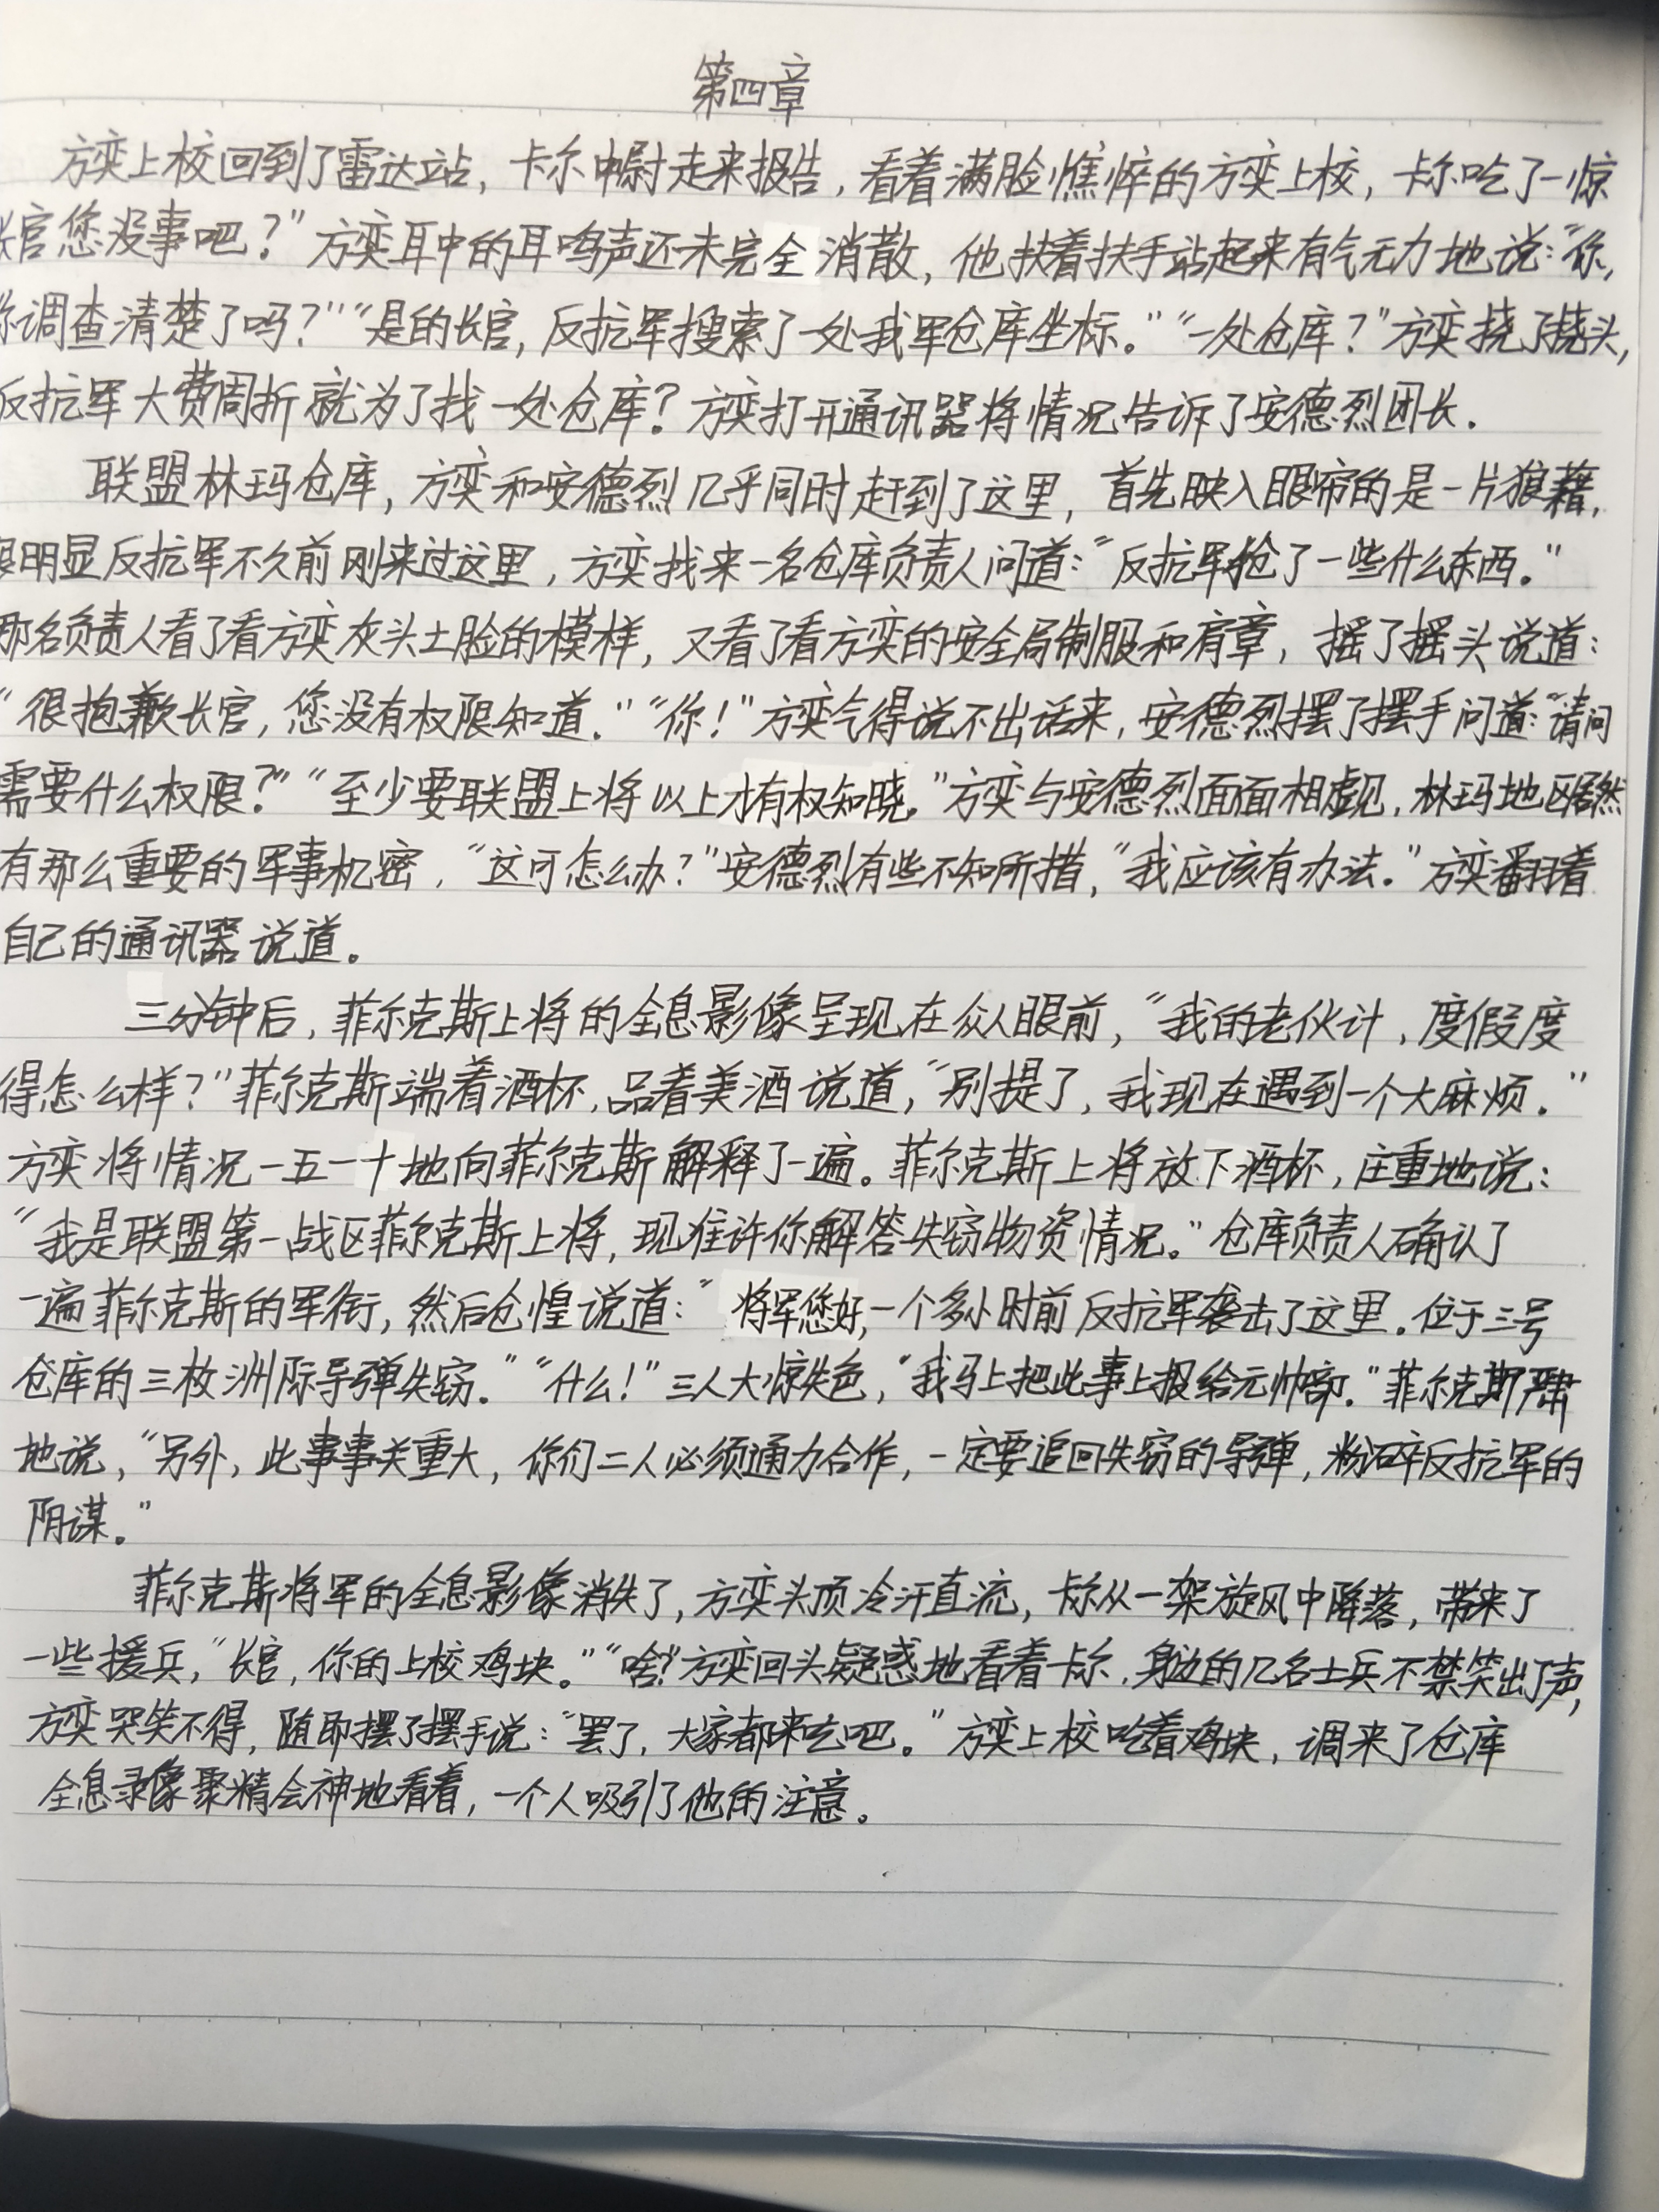 第四章
方奕上校回到了雷达站，卡尔中尉走来报告，看着满脸憔悴的方奕上校，卡尔吃了一惊
长官您没事吧？”方奕耳中的耳鸣声还未完全消散，他扶着扶手站起来有气无力地说：“你，
你调查清楚了吗？”“是的长官，反抗军搜索了一处我军仓库坐标。”“一处仓库？”方奕挠了挠头，
反抗军大费周折就为了找一处仓库？方奕打开通讯器将情况告诉了安德烈团长．
联盟林玛仓库，方奕和安德烈几乎同时赶到了这里，首先映入眼帘的是一片狼藉，
很明显反抗军不久前刚来过这里，方奕找来一名仓库负责人问道：“反抗军抢了一些什么东西。”
那名负责人看了看方奕灰头土脸的模样，又看了看方奕的安全局制服和肩章，摇了摇头说道：
“很抱歉长官，您没有权限知道．”“你！”方奕气得说不出话来，安德烈摆了摆手问道：“请问
需要什么权限？”“至少要联盟上将以上才有权知晓。”方奕与安德烈面面相觑，林玛地区居然
有那么重要的军事机密，“这可怎么办？”安德烈有些不知所措，“我应该有办法．”方奕翻着
自己的通讯器说道。
三分钟后，菲尔克斯上将的全息影像呈现在众人眼前，“我的老伙计，度假度
得怎么样？”菲尔克斯端着酒杯，品着美酒说道，“别提了，我现在遇到一个大麻烦．”
方奕将情况一五一十地向菲尔克斯解释了一遍。菲尔克斯上将放下酒杯，庄重地说：
“我是联盟第一战区菲尔克斯上将，现准许你解答失窃物资情况。”仓库负责人确认了
一遍菲尔克斯的军衔，然后仓惶说道：“将军您好，一个多小时前反抗军袭击了这里．位于三号
仓库的三枚洲际导弹失窃．”“什么！”三人大惊失色，“我马上把此事上报给元帅部．”菲尔克斯严肃
地说，“另外，此事事关重大，你们二人必须通力合作，一定要追回失窃的导弹，粉碎反抗军的
阴谋。”
菲尔克斯将军的全息影像消失了，方奕头顶冷汗直流，卡尔从一架旋风中降落，带来了
一些援兵，“长官，你的上校鸡块。”“啥？”方奕回头疑惑地看着卡尔，身边的几名士兵不禁笑出了声，
方奕哭笑不得，随即摆了摆手说：“罢了，大家都来吃吧。”方奕上校吃着鸡块，调来了仓库
全息录像聚精会神地看着，一个人吸引了他的注意。